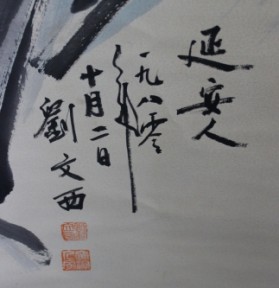 延安人
一九八零年
十月二日
劉文西